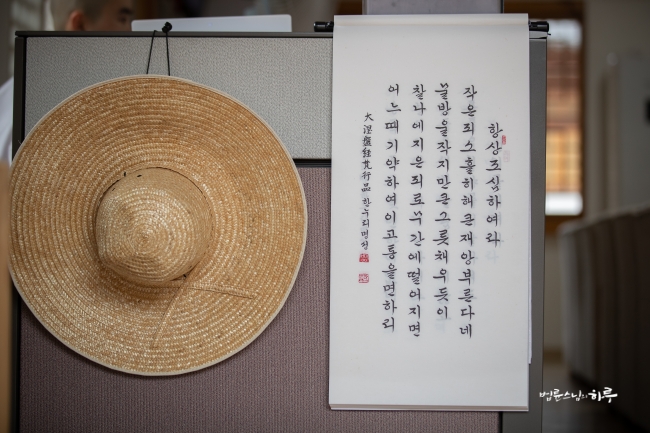 항상조심하여라
작은죄소홀히해큰재앙부른다네
물방울작지만큰그릇채우듯이
찰나에지은죄로무간에떨어지면
어느때기약하여이고통을면하리
大涅盤經梵行品 한누리
법륜스님의하루